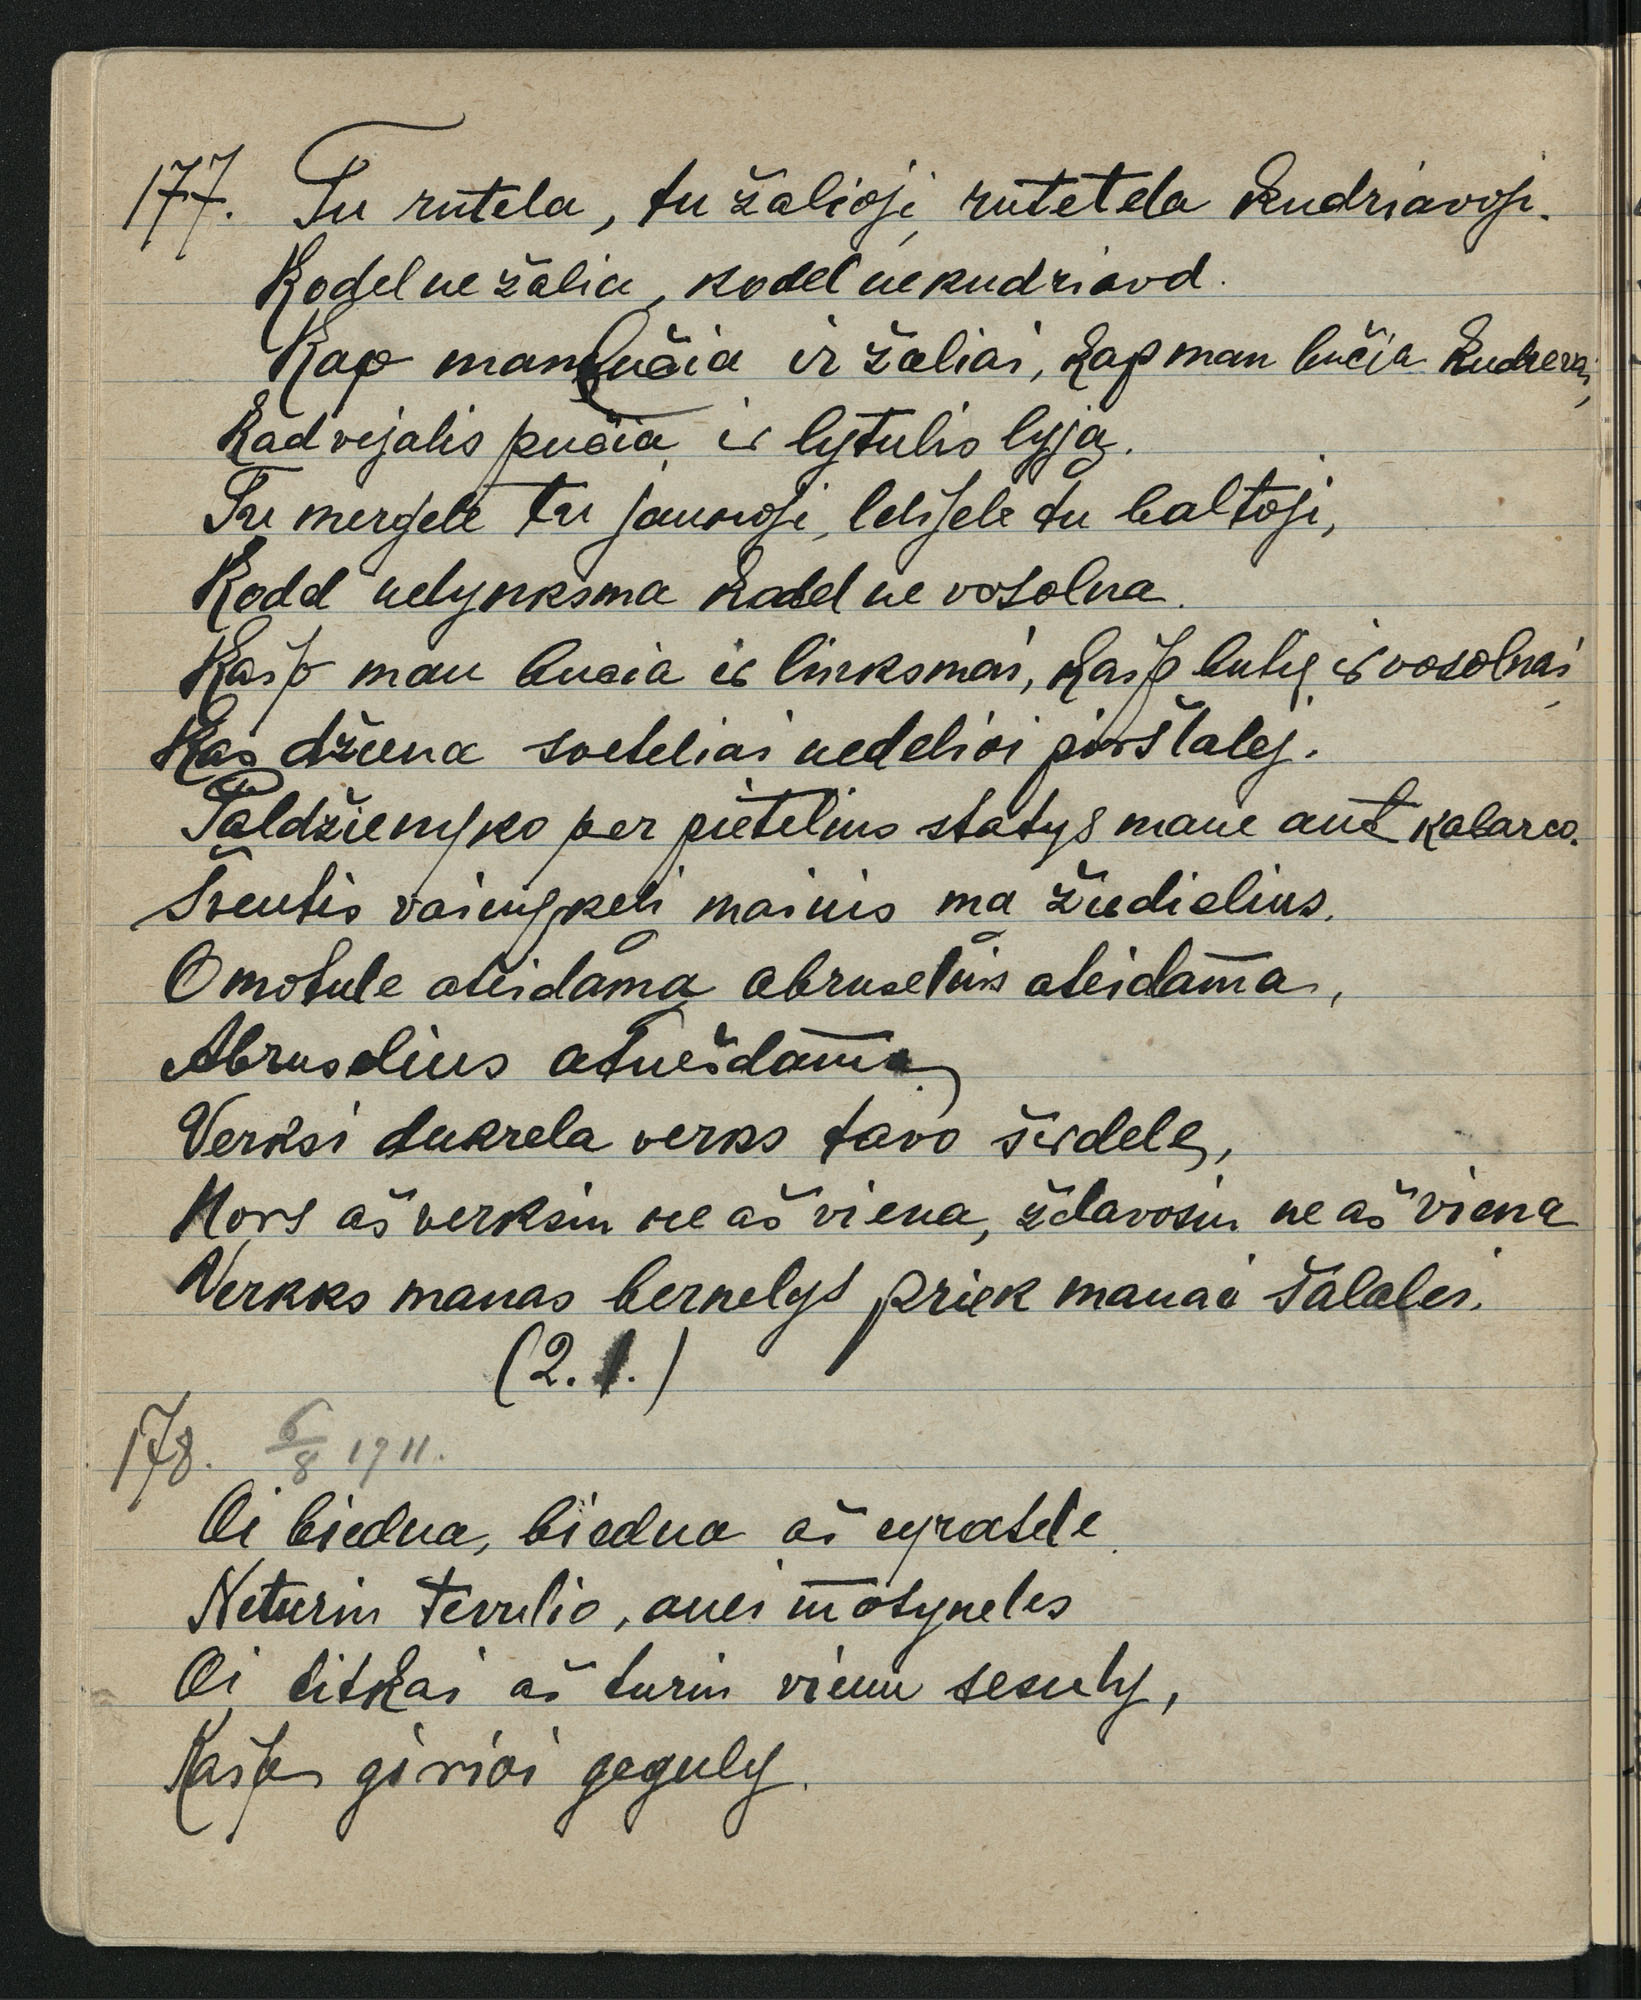 177. Tu rūtela, tu žalioji, rūtetela kudriavoji.
Kodel ne žalia, kodel nekudriavà.
Kap man bučia ir žaliai, kap man bučia kudrevai,
Kad vejalis pučia ir lytulis lyja.
Tu mergele tu jaunoji, lelijele tu baltoji,
Kodel nelynksma kodel ne vosolna.
Kaip man bučia ir linksmai, kaip butų ir vosolnai
Kas džiena sveteliai nedelioi pirštalej.
Paldžienyko per pietelius statys mane ant kabarco.
Šventis vainykeli mainis ma žiedielius.
O motule ateidama abruselius ateidama,
Abruselius atnešdama
Verksi dukrela verks tavo širdele,
Nors aš verksiu ne aš viena, žlavosiu ne aš viena
Verkks manas bernelys priek manai šalalei.
(2. 1.)
178. 6/8 1911.
Oi biedna, biedna aš syratele
Neturiu tevulio, anei motyneles
Oi titkai aš turiu vienu sesuly,
Kaip girioi geguly.